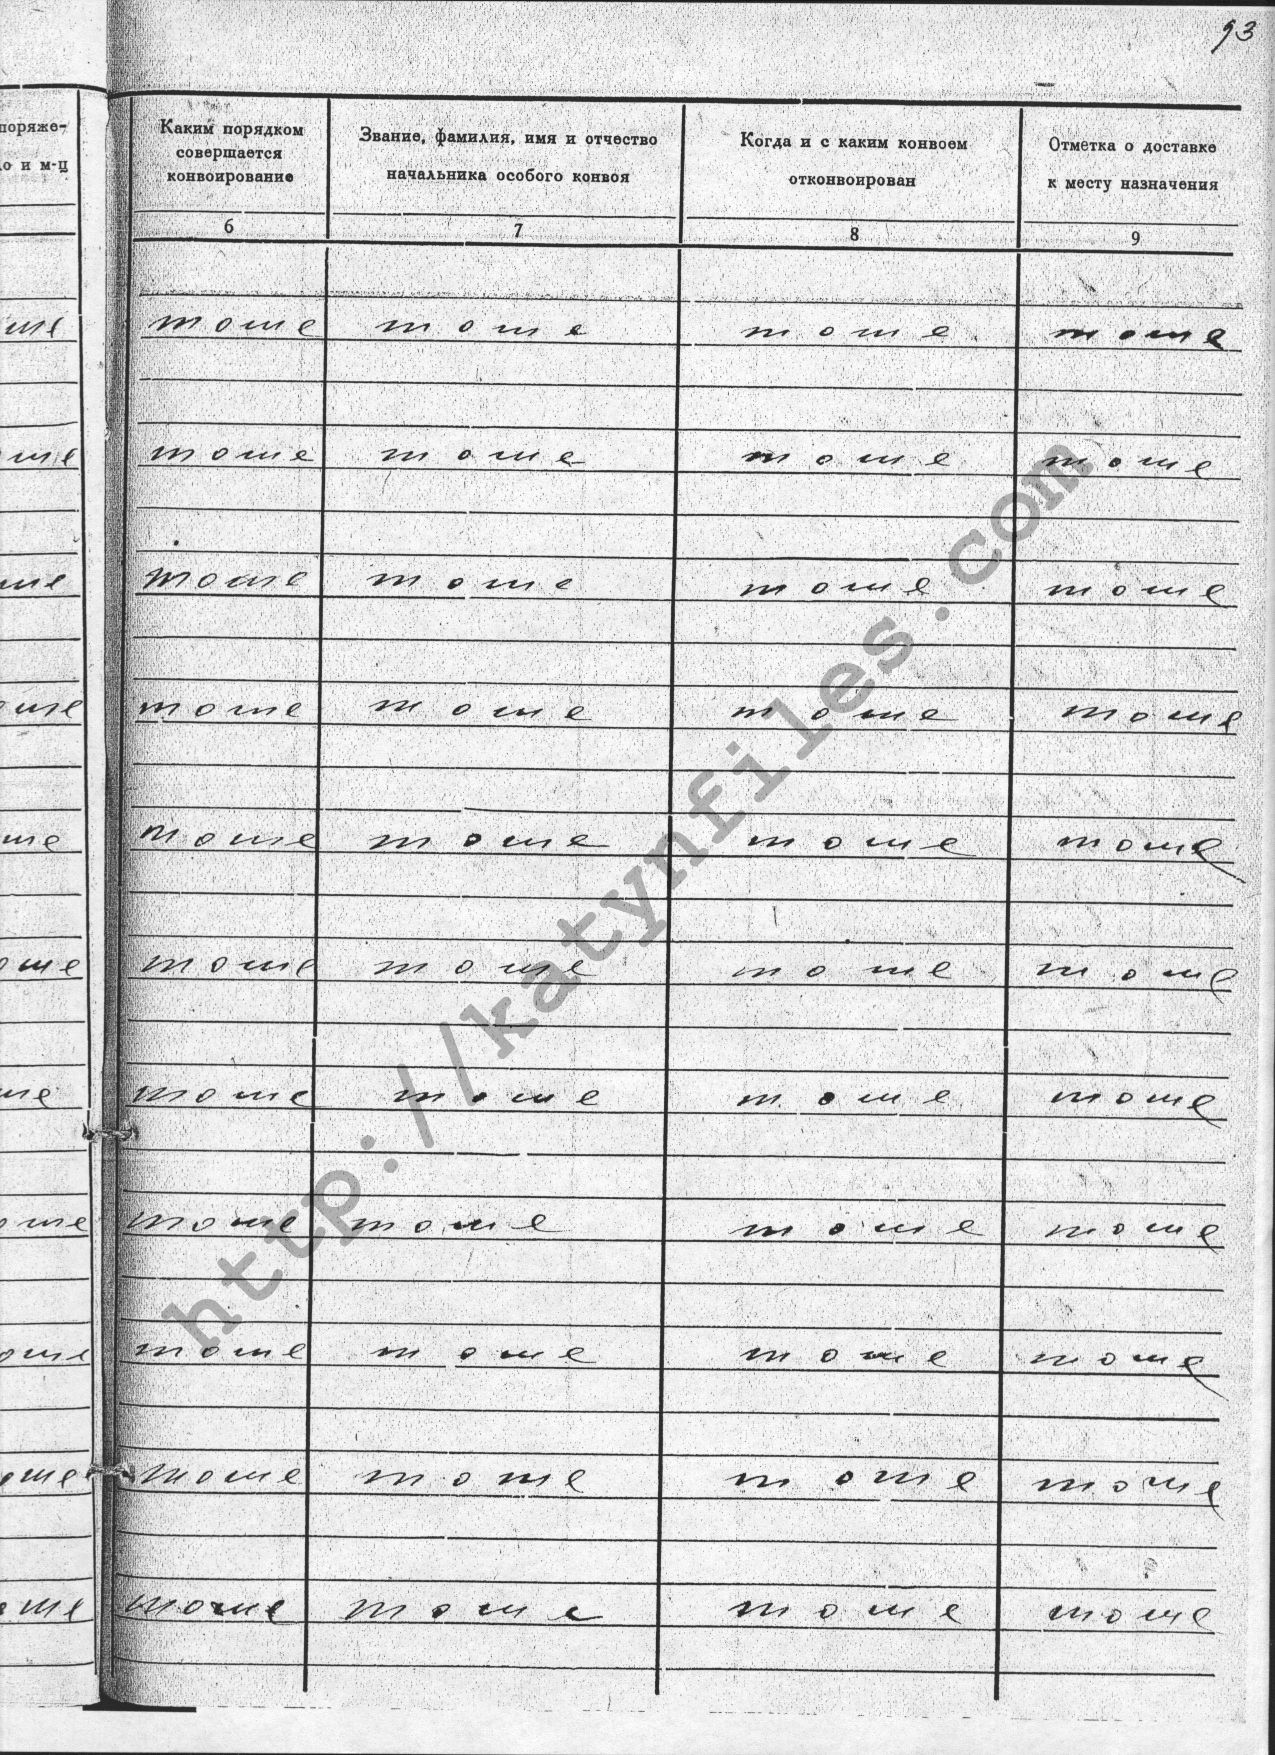 93
поряже-
о и м-ц
Каким порядком
совершается
конвоирование
Звание, фамилия, имя и отчество
начальника особого конвоя
Когда и с каким конвоем
отконвоирован
Отметка о доставке
к месту назначения
6 7 8 9
оше тоше тоше тоше тоше
оше тоше тоше тоше тоше
оше тоше тоше тоше тоше
оше тоше тоше тоше тоше
оше тоше тоше тоше тоше
оше тоше тоше тоше тоше
оше тоше тоше тоше тоше
оше тоше тоше тоше тоше
оше тоше тоше тоше тоше
оше тоше тоше тоше тоше
оше тоше тоше тоше тоше
http://katynfiles.com